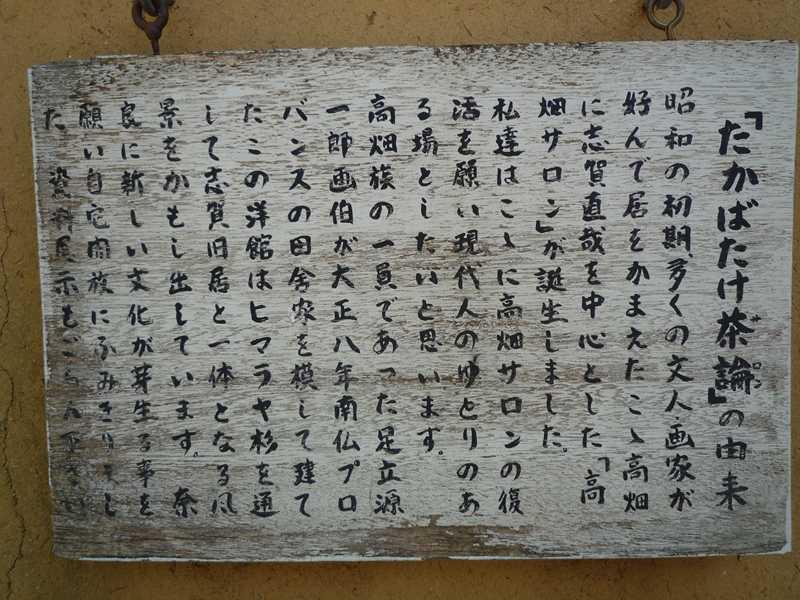 「たかばたけ茶論」の由来
サロン
昭和の初期、多くの文人画家が
好んで居をかまえたこゝ高畑
に志賀直哉を中心とした「高
畑サロン」が誕生しました。
私達はこゝに高畑サロンの復
活を願い現代人のゆとりのあ
る場としたいと思います。
高畑族の一員であった足立源
一郎画伯が大正八年南仏プロ
バンスの田舎家を模して建て
たこの洋館はヒマラヤ杉を通
して志賀旧居と一体となる風
景をかもし出しています。奈
良に新しい文化が芽生る事を
願い自宅開放にふみきりまし
た 資料展示もごらん下さい